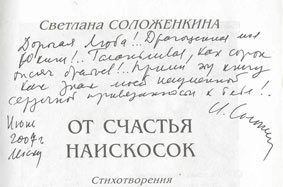 Светлана СОЛОЖЕНКИНА
Дорогая Люба!.. Драгоценная моя
как сорок
тысяч братьев!.. Прими эту книгу
как знак моей неизменной
сердечной привязанности к тебе!
Июнь
2007 г
ОТ СЧАСТЬЯ
НАИСКОСОК
Стихотворения